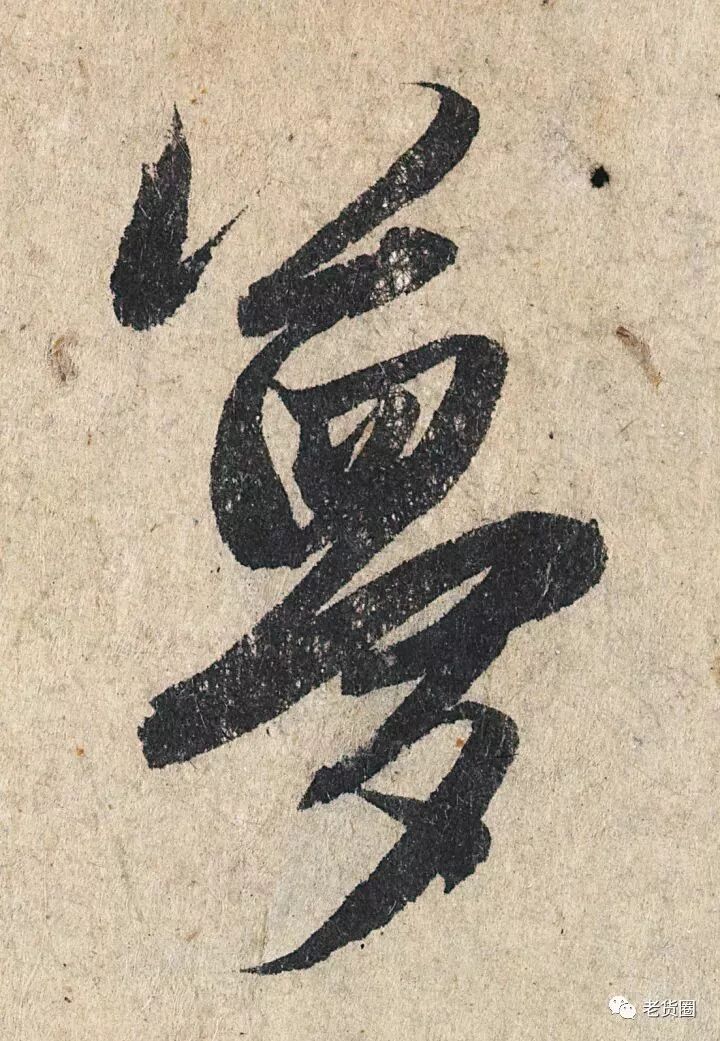 夢
老货圈